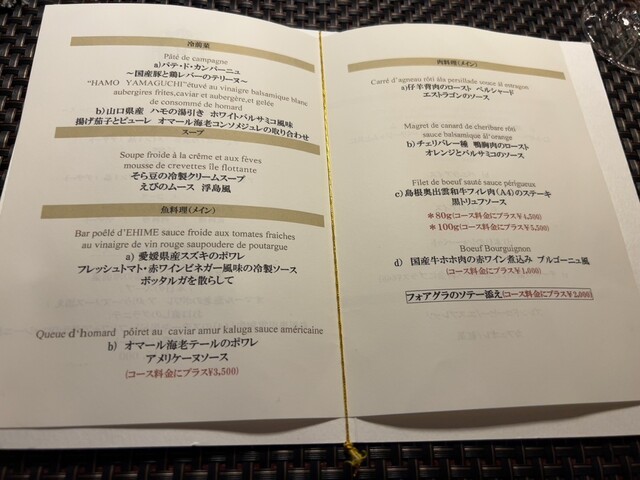 冷前菜
Pâté de campagne
a)パテ・ド・カンパーニュ
～国産豚と鶏レバーのテリーヌ～
“HAMO YAMAGUCHI”étuvé au vinaigre balsamique blanc
aubergines frites,caviar et aubergère,et gelée
de consommé de homard
b)山口県産 ハモの湯引き ホワイトバルサミコ風味
揚げ茄子とピューレ オマール海老コンソメジュレの取り合わせ
スープ
Soupe froide à la crême et aux fèves
mousse de crevettes île flottante
そら豆の冷製クリームスープ
えびのムース 浮島風
魚料理(メイン)
Bar poêlé d'EHIME sauce froide aux tomates fraiches
au vinaigre de vin rouge saupoudere de poutargue
a) 愛媛県産スズキのポワレ
フレッシュトマト・赤ワインビネガー風味の冷製ソース
ボッタルガを散らして
Queue d'homard pôiret au caviar amur kaluga sauce américaine
b) オマール海老テールのポワレ
アメリケーヌソース
(コース料金にプラス¥3,500)
肉料理(メイン)
Carré d'agneau rôti àla persillade souce àl estragon
a)仔羊背肉のロースト ペルシャード
エストラゴンのソース
Magret de canard de cheribare rôti
sauce balsamique àl'orange
b)チェリバレー種 鴨胸肉のロースト
オレンジとバルサミコのソース
Filet de boeuf sauté sauce périgueux
c)島根奥出雲和牛フィレ肉(A4)のステーキ
黒トリュフソース
＊80g(コース料金にプラス¥4,500)
＊100g(コース料金にプラス¥5,500)
Boeuf Bourguignon
d) 国産牛ホホ肉の赤ワイン煮込み ブルゴーニュ風
(コース料金にプラス¥1,000)
フォアグラのソテー添え(コース料金にプラス¥2,000)